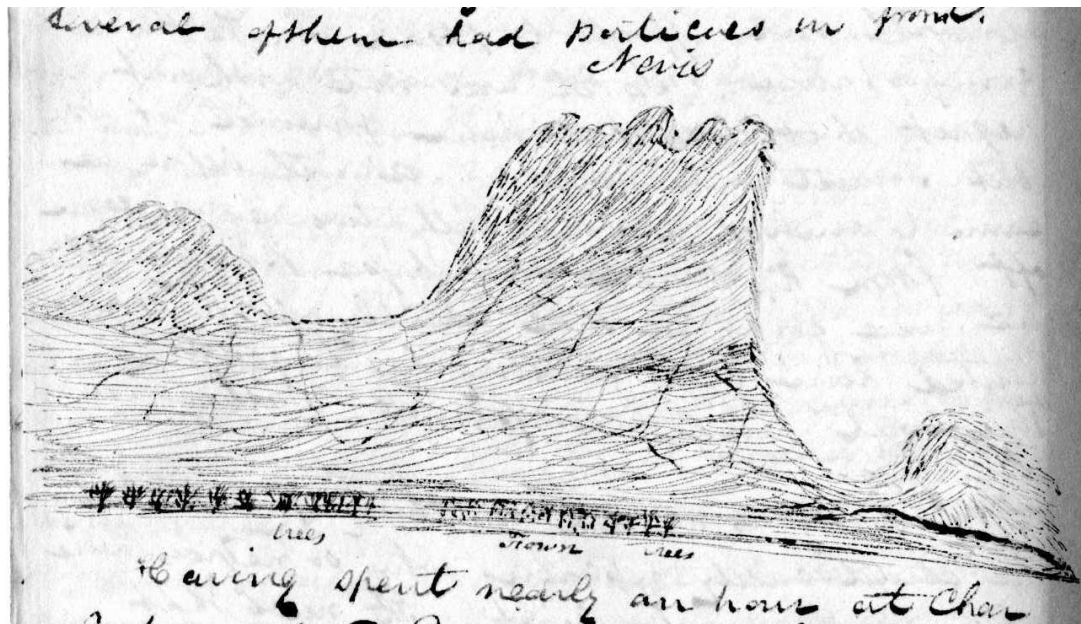 several of them had porticoes in front.
Nevis
trees Town trees
Having spent nearly an hour at Char